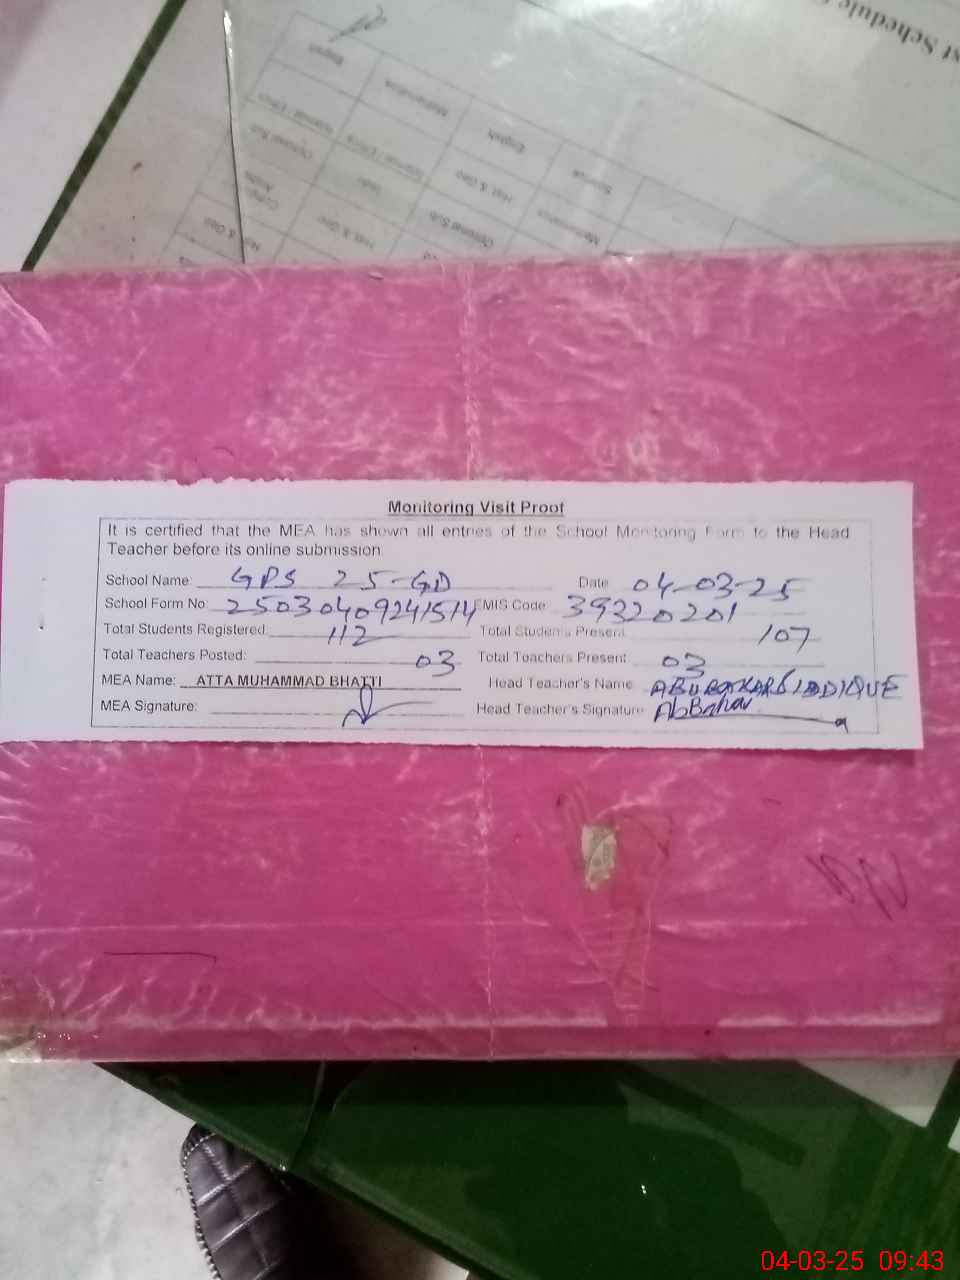 st Schedule
English
Science
Mathematics
Monitoring Visit Proof
It is certified that the MEA has shown all entries of the School Monitoring Form to the Head
Teacher before its online submission
School Name: GPS 25-GD Date 04-03-25
School Form No: 25030409241514 EMIS Code 39320201
Total Students Registered: 112 Total Students Present 107
Total Teachers Posted: 03 Total Teachers Present 03
MEA Name: ATTA MUHAMMAD BHATTI Head Teacher's Name ABUBAKAR SIDDIQUE
MEA Signature: Head Teacher's Signature
04-03-25 09:43